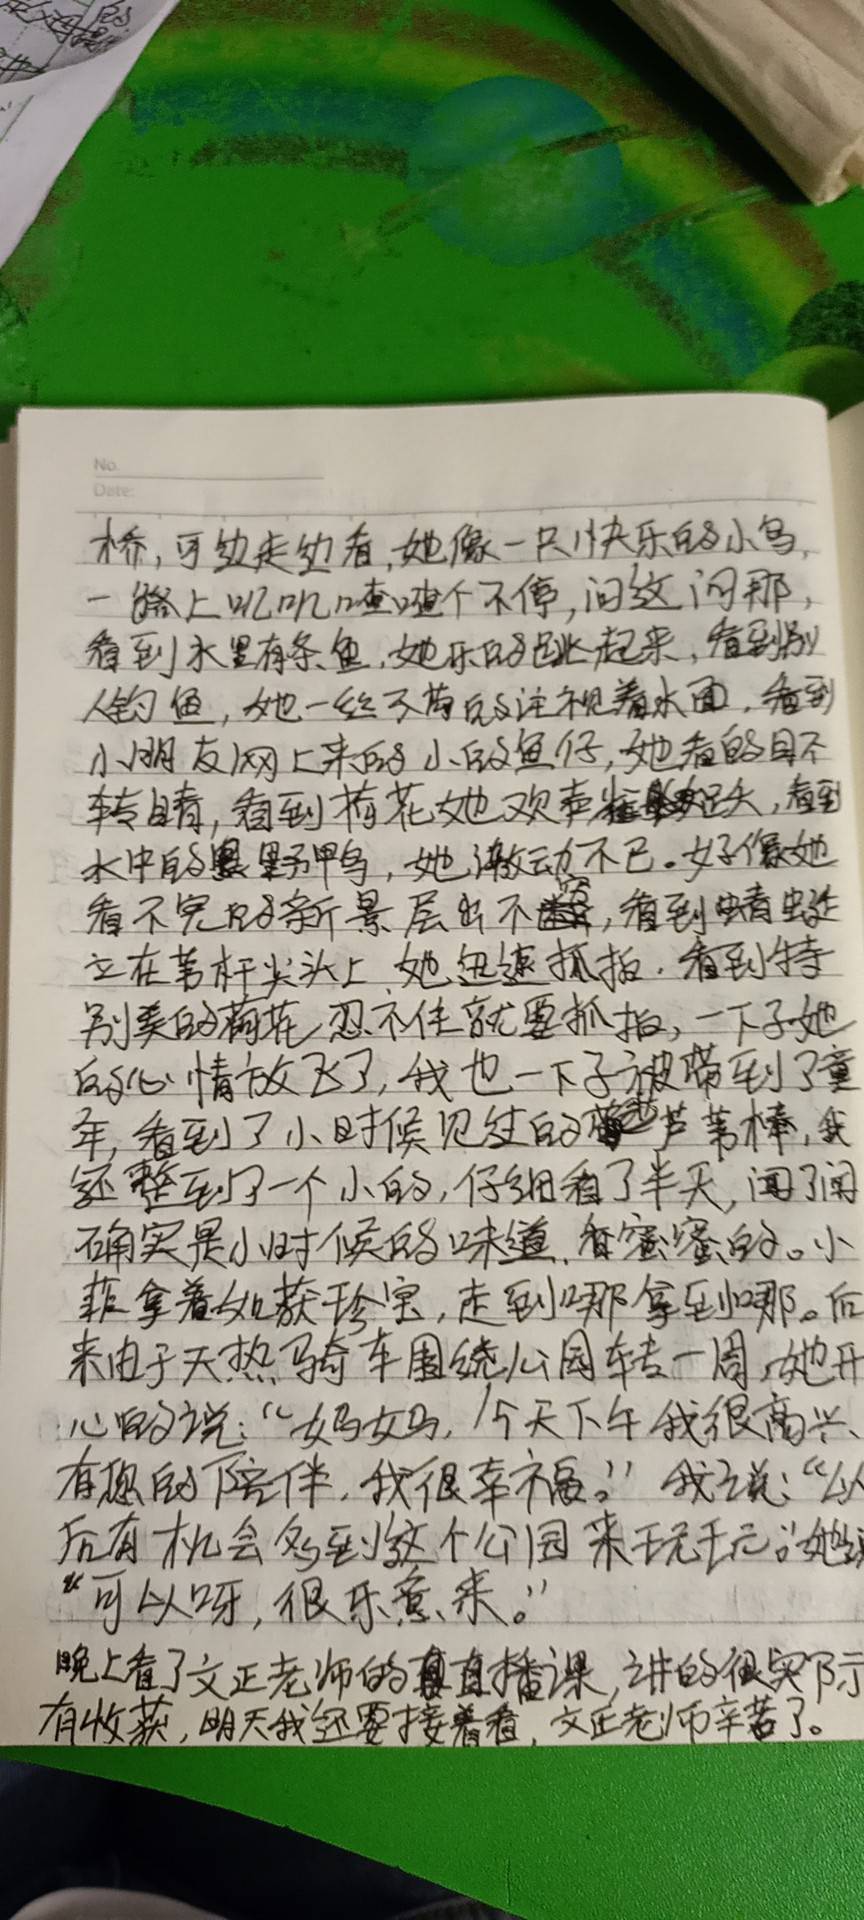 No.
Date:
桥，可边走边看，她像一只快乐的小鸟，
一路上叽叽喳喳个不停，问这问那，
看到水里有条鱼，她乐的跳起来，看到别
人钓鱼，她一丝不苟的注视着水面，看到
小朋友网上来的小的鱼仔，她看的目不
转睛，看到荷花她欢声雀跃，看到
水中的野鸭，她激动不已。好像她
看不完的新景层出不穷，看到蜻蜓
立在苇杆尖头上，她迅速抓拍，看到特
别美的荷花忍不住就要抓拍，一下子她
的心情放飞了，我也一下子被带到了童
年，看到了小时候见过的芦苇棒，我
还整到了一个小的，仔细看了半天，闻了闻
确实是小时候的味道，香蜜蜜的。小
菲拿着如获珍宝，走到哪拿到哪。后
来由于天热骑车围绕公园转一周，她开
心的说：“妈妈，今天下午我很高兴、
有您的陪伴，我很幸福。”我说：“以
后有机会多到这个公园来玩玩。”她说
“可以呀，很乐意来。”
晚上看了文正老师的直播课，讲的很实际
有收获，明天我还要接着看，文正老师辛苦了。